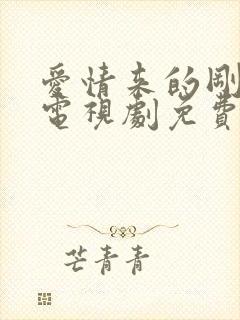 愛情來的剛
電視劇免費
芒青青